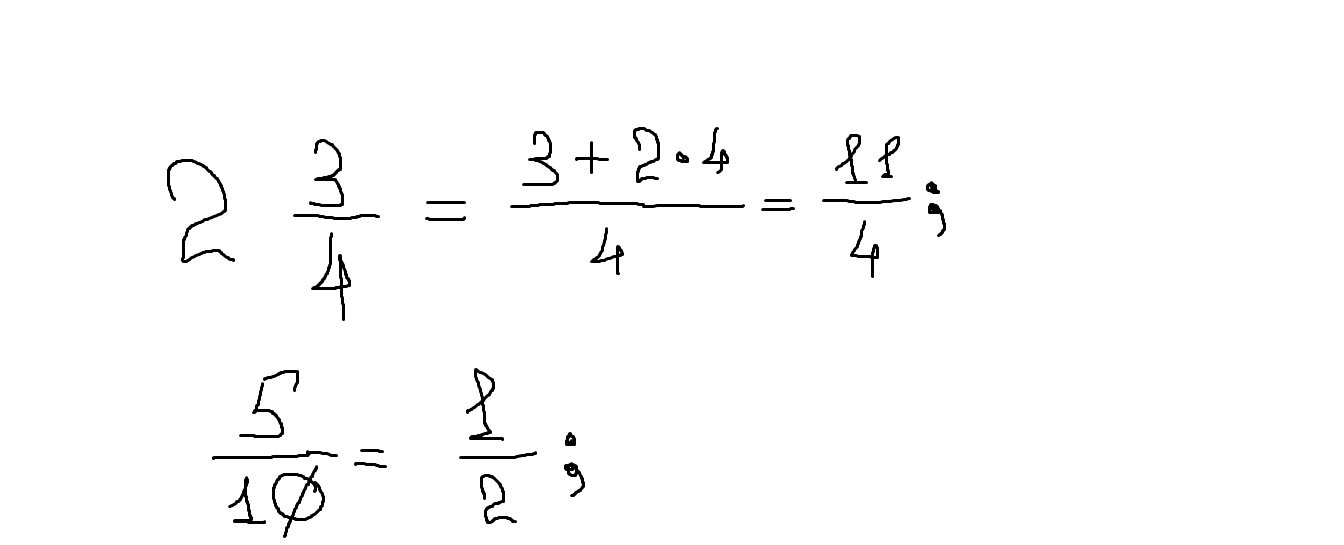 2 3/4 = (3 + 2 · 4)/4 = 11/4 ;
5/10 = 1/2 ;